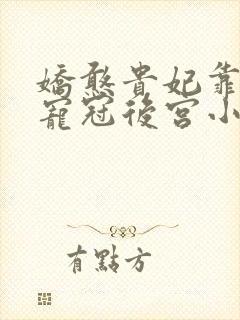 嬌憨貴妃靠
寵冠後宮小
有點方